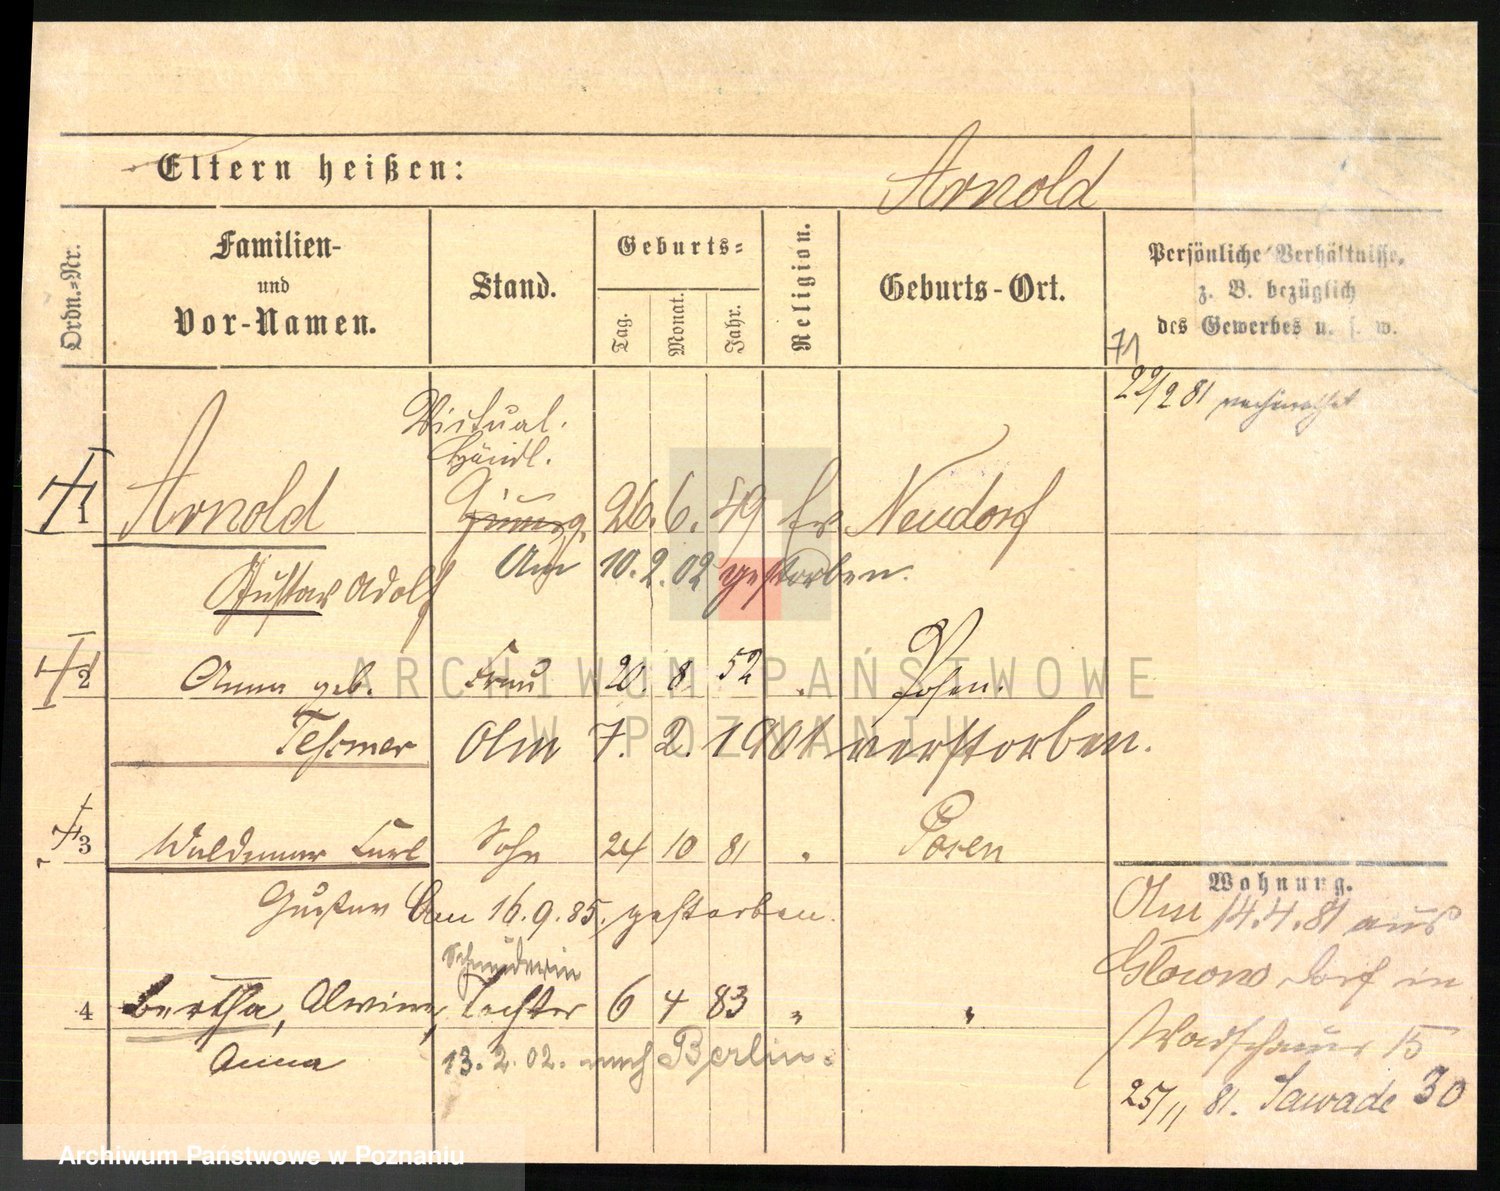 Eltern heißen:
Arnold
Ordn.-Nr.
Familien-
und
Vor-Namen.
Stand.
Geburts-
Tag.
Monat.
Jahr.
Religion.
Geburts-Ort.
Persönliche Verhältnisse,
z. B. bezüglich
des Gewerbes u. s. w.
71
22/2 81
Victual.
Händl.
1 Arnold 26. 6. 49 Ev Neudorf
Gustav Adolf Am 10. 2. 02 gestorben.
2 Anna geb. Frau 20 8 52 Posen.
Teszmer Am 7. 2. 1901 verstorben.
3 Waldemar Karl Sohn 24 10 81 Posen
Gustav Am 16. 9. 85. gestorben.
Schneiderin
4 Bertha, Alwine, Tochter 6 4 83 " "
Anna 13. 2. 02. nach Berlin.
Wohnung.
Am 14.4.81 aus
Glowno Dorf in
15
25/11 81. Sawade 30
ARCHIWUM PAŃSTWOWE
W POZNANIU
Archiwum Państwowe w Poznaniu